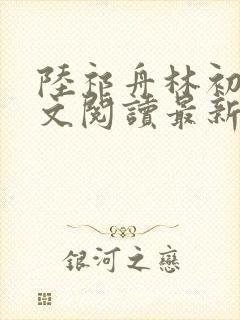 陸祁舟林初
文閱讀最新
銀河之戀